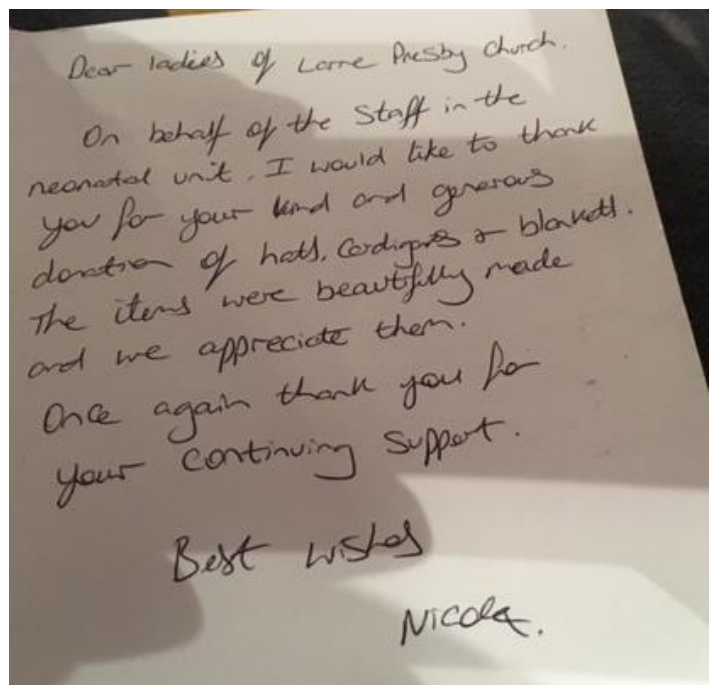 Dear ladies of Lorne Presby Church.
On behalf of the Staff in the
neonatal unit. I would like to thank
you for your kind and generous
donation of hats, Cardigans & blankets.
The items were beautifully made
and we appreciate them.
Once again thank you for
your continuing support.
Best wishes
Nicola.